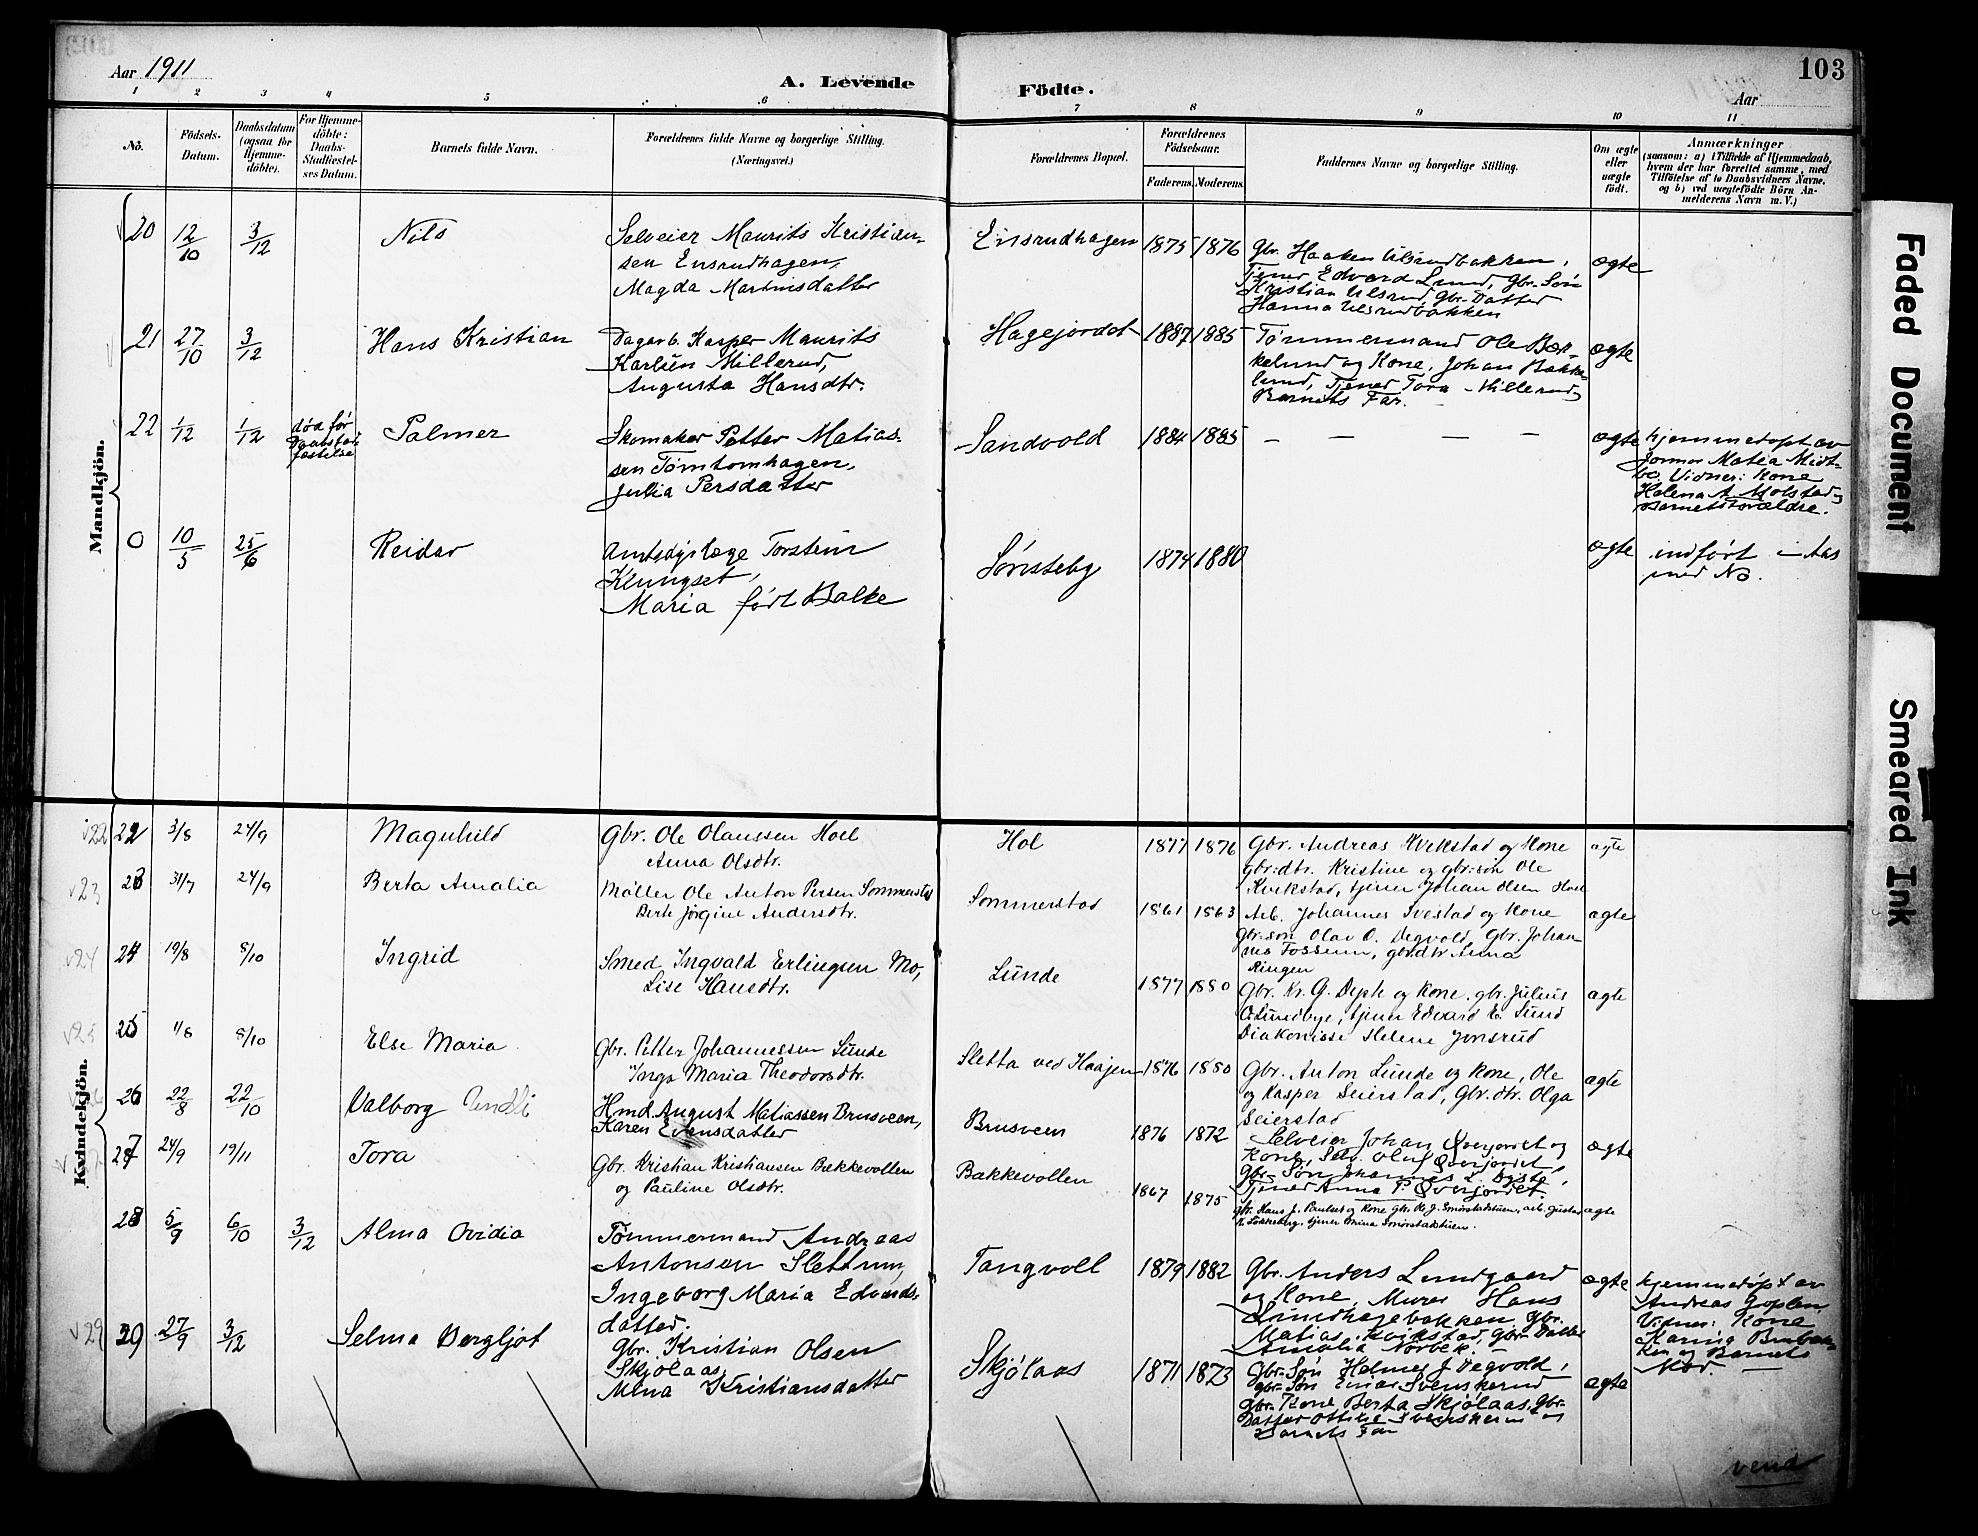 Aar 1911
A. Levende
Födte.
103
Aar
1 2 3 4 5 6 7 8 9 10 11
No.
Födsels-
Datum.
Daabsdatum
(ogsaa for
Hjemme-
döbte).
For Hjemme-
döbte:
Daabs-
Stadfæstel-
ses Datum.
Barnets fulde Navn.
Forældrenes fulde Navne og borgerlige Stilling.
(Næringsvei.)
Forældrenes Bopæl.
Forældrenes
Födselsaar.
Faderens. Moderens.
Faddernes Navne og borgerlige Stilling.
Om ægte
eller
uægte
födt.
Anmærkninger
(saasom: a) i Tilfælde af Hjemmedaab,
hvem der har forrettet samme, med
Tilföielse af to Daabsvidners Navne,
og b) ved uægtefödte Börn An-
melderens Navn m. V.)
Mandkjön.
20 12/10 3/12 Nils
Selveier Maurits Kristian-
sen Ensrudhagen,
Magda Martinsdatter
Ensrudhagen 1875 1876
Gbr. Haaken Ulsrudbakken,
Tjener Edvard Lund, Gbr. Søn
Kristian Ulsrud, Gbr. Datter
Hanna Ulsrudbakken
ægte
21 27/10 3/12 Hans Kristian
Dagarb. Kasper Maurits
Karlsen Hillerud,
Augusta Hansdtr.
Hagejordet 1887 1885
Tømmermand Ole Bæk-
kelund og Kone, Johan Bække-
lund, Tjener Tora Hillerud,
Barnets Far.
ægte
22 1/12 1/12 død før
Daabstad-
fæstelse
Palmer
Skomaker Petter Matias-
sen Tømtomhagen,
Julia Persdatter
Sandvold 1884 1885 — — — — ægte
hjemmedøpt av
Jormor Matea Midt-
bø. Vidner: Kone
Helena A. Molstad,
Barnets Forældre.
0 10/5 25/6 Reidar
Amtsdyrlæge Torstein
Klungset,
Maria født Balke
Sønsteby 1874 1880 ægte
indført i Aas
med No.
Kvindekjön.
v22 22 3/8 24/9 Magnhild
Gbr. Ole Olaussen Hoel
Anna Olsdtr.
Hol 1877 1876
Gbr. Andreas Kvikstad og Kone
gbr:dtr. Kristine og gbr:søn Ole
Kvikstad, tjener Johan Olsen Hoel
ægte
v23 23 31/7 24/9 Berta Amalia
Møller Ole Anton Persen Sommerstad
Berte Jørgine Andersdtr.
Sommerstad 1861 1863
Arb. Johannes Ivestad og Kone
gbr-søn Olav O. Degvold, Gbr. Johan-
nes Fossum, gbrdtr Anna
Ringen
ægte
v24 24 19/8 8/10 Ingrid
Smed Ingvald Erlingsen Mo,
Lise Hansdtr.
Lunde 1877 1880
Gbr. Kr. G. Dysth og Kone, gbr. Julius
Ø. Sundbye, tjener Edvard E. Lund
Diakonisse Helene Jonsrud
ægte
v25 25 4/8 8/10 Else Maria
Gbr. Petter Johannessen Lunde
Inga Maria Theodorsdtr.
Sletta ved Haajen 1876 1880
Gbr. Anton Lunde og Kone, Ole
og Kasper Seierstad, Gbr.dtr. Olga
Seierstad
ægte
26 22/8 22/10 Valborg
Hmd. August Matiassen Brusveen,
Karen Evensdatter
Brusveen 1876 1872
Selveier Johan Øverjordet og
Kone, Selv. Oluf Øverjordet,
Gbr. Søn Johannes L. Dyste,
Tjener Anna P. Øverjordet.
ægte
27 24/9 19/11 Tora
Gbr. Kristian Kristiansen Bakkevollen
og Pauline Olsdtr.
Bakkevollen 1867 1875
ægte
28 5/9 6/10 3/12 Alma Ovidia
Tømmermand Andreas
Antonsen Slettum,
Ingeborg Maria Edvards-
datter.
Tangvoll 1879 1882
Gbr. Anders Lundgaard
og Kone, Murer Hans
Lundhagebakken, Gbr.
Matias Kvikstad, Gbr. Datter
Amalia Norbek. —
ægte
hjemmedøpt av
Andreas Goplen
Vidner: Kone
Karina Burbak-
ken og Barnets
Mor. —
v29 29 27/9 3/12 Selma Bergljot
Gbr. Kristian Olsen
Skjølaas,
Mina Kristiansdatter
Skjølaas 1871 1873
Gbr. Søn Helmer J. Degvold,
gbr. Søn Einar Svenskerud
Gbr. Kone Berta Skjølaas, Gbr.
Datter Ottilie Svenskerud og
Barnets Far
ægte
vend
Faded Document
Smeared Ink